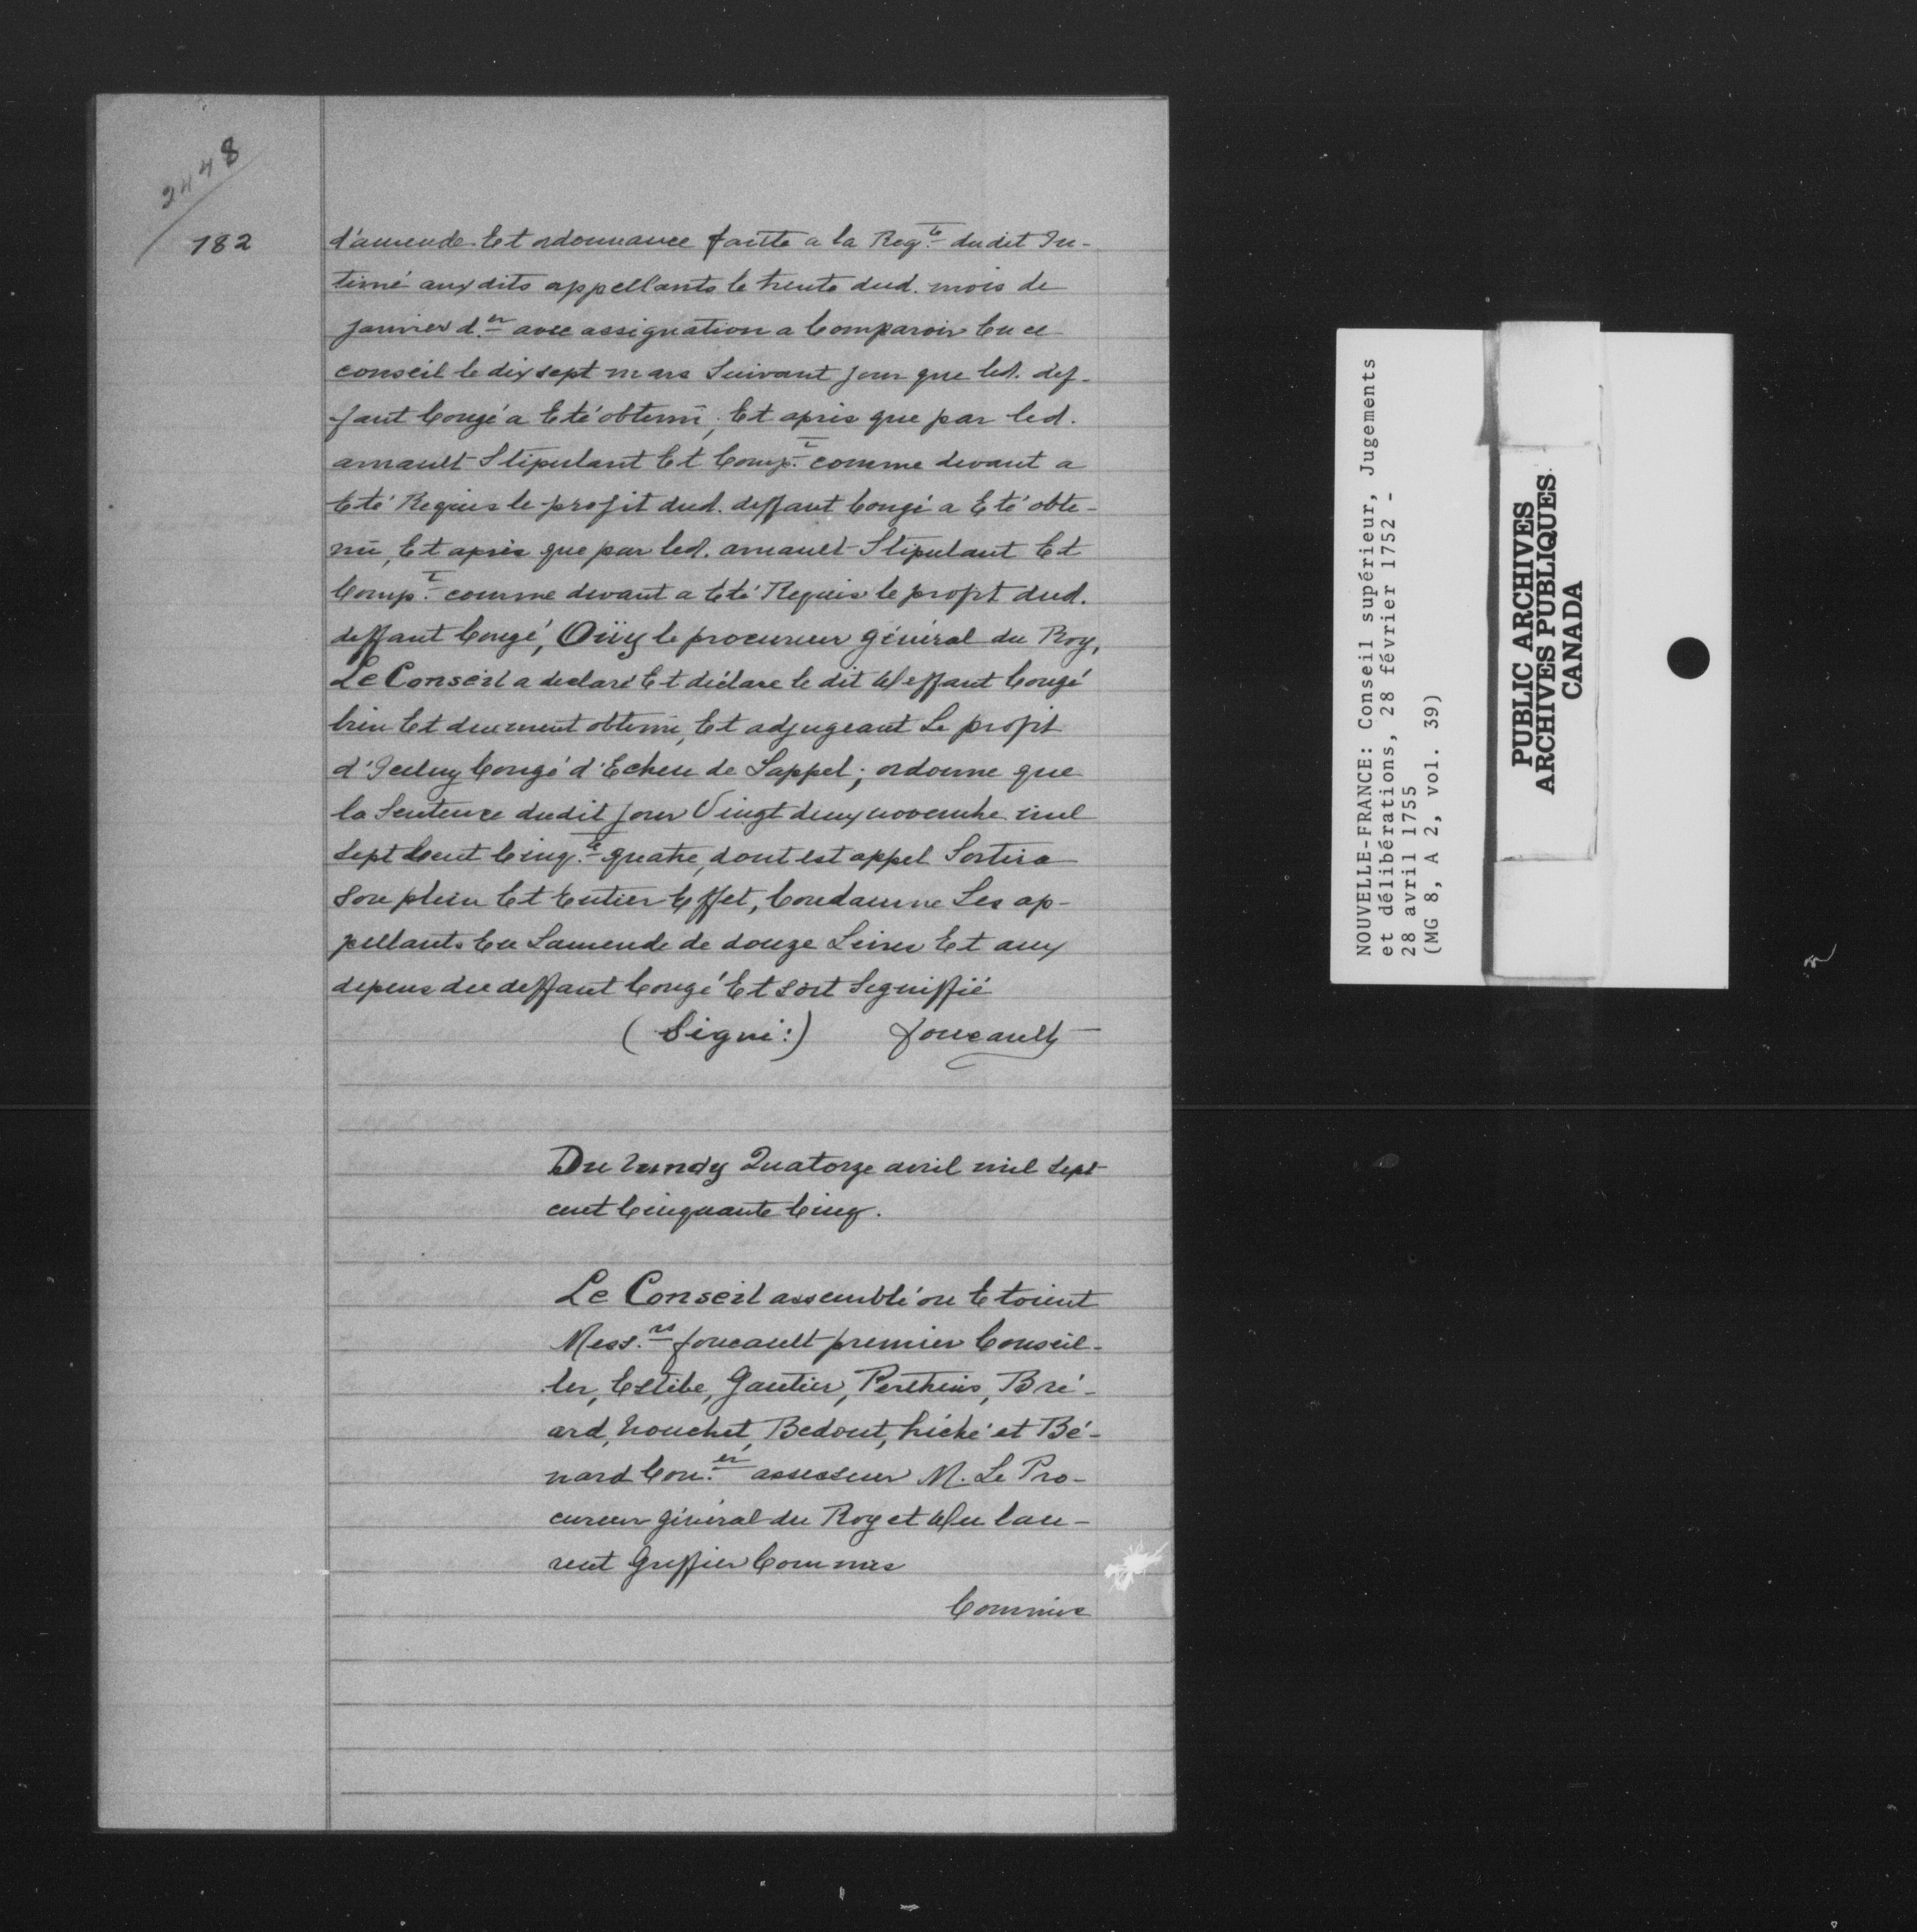 2448
182
d'amende Et ordonnance faitte a la Reqte dudit In-
timé aux dits appellants le trente dud. mois de
janvier d.er avec assignation a Comparoir En ce
conseil le dix sept mars Suivant jour que led. def-
faut Congé a Eté obtenü; Et après que par led.
arnault Stipulant Et Comp.t comme devant a
Eté Requis le profit dud. deffaut Congé a Eté obte-
nü, Et après que par led. arnault Stipulant Et
Comp.t comme devant a Eté Requis le profit dud.
deffaut Congé, Oüy le procureur général du Roy,
Le Conseil a declaré Et déclare le dit Deffaut Congé
bien Et deuement obtenü, Et adjugeant Le profit
d'Iceluy Congé d'Echeu de Lappel; ordonne que
la Sentence dudit jour Vingt deux novembre mil
Sept Cent Cinq.te quatre, dont est appel Sortira
Son plein Et Entier Effet, Condamne Les ap-
pellants En Lamende de douze Livres Et aux
depens du deffaut Congé Et soit Signiffié
(Signé:) foucault
Du Lundy Quatorze avril mil Sept
cent Cinquante Cinq.
Le Conseil assemblé ou Etoient
Mess.rs foucault premier Conseil-
ler, Estebe, Gautier, Perthuis, Bré-
ard, Nouchet, Bedout, hiché et Bé-
nard Con.er assesseur M. Le Pro-
cureur général du Roy et Du lau-
rent Greffier Commis
Commis
NOUVELLE-FRANCE: Conseil supérieur, Jugements
et délibérations, 28 février 1752 -
28 avril 1755
(MG 8, A 2, vol. 39)
PUBLIC ARCHIVES
ARCHIVES PUBLIQUES
CANADA